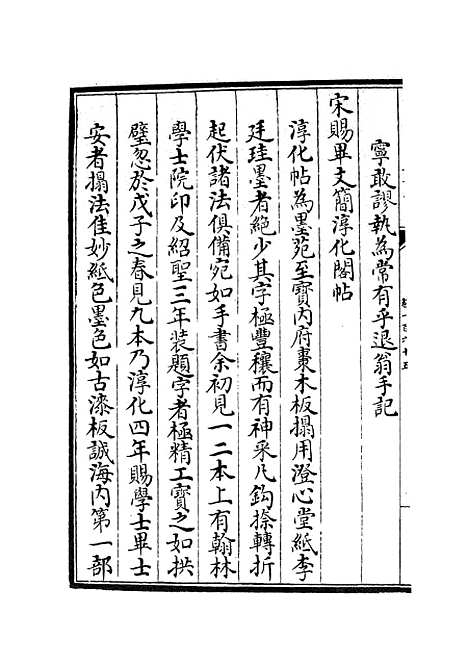 寧敢謬執為常有乎退翁手記
宋賜畢文簡淳化閣帖
淳化帖為墨苑至寶内府棗木板搨用澄心堂紙李
廷珪墨者絶少其字極豐穰而有神采凡鈎捺轉折
起伏諸法俱備宛如手書余初見一二本上有翰林
學士院印及紹聖三年装題字者極精工寶之如拱
璧忽於戊子之春見九本乃淳化四年賜學士畢士
安者搨法佳妙紙色墨色如古漆板誠海内第一部